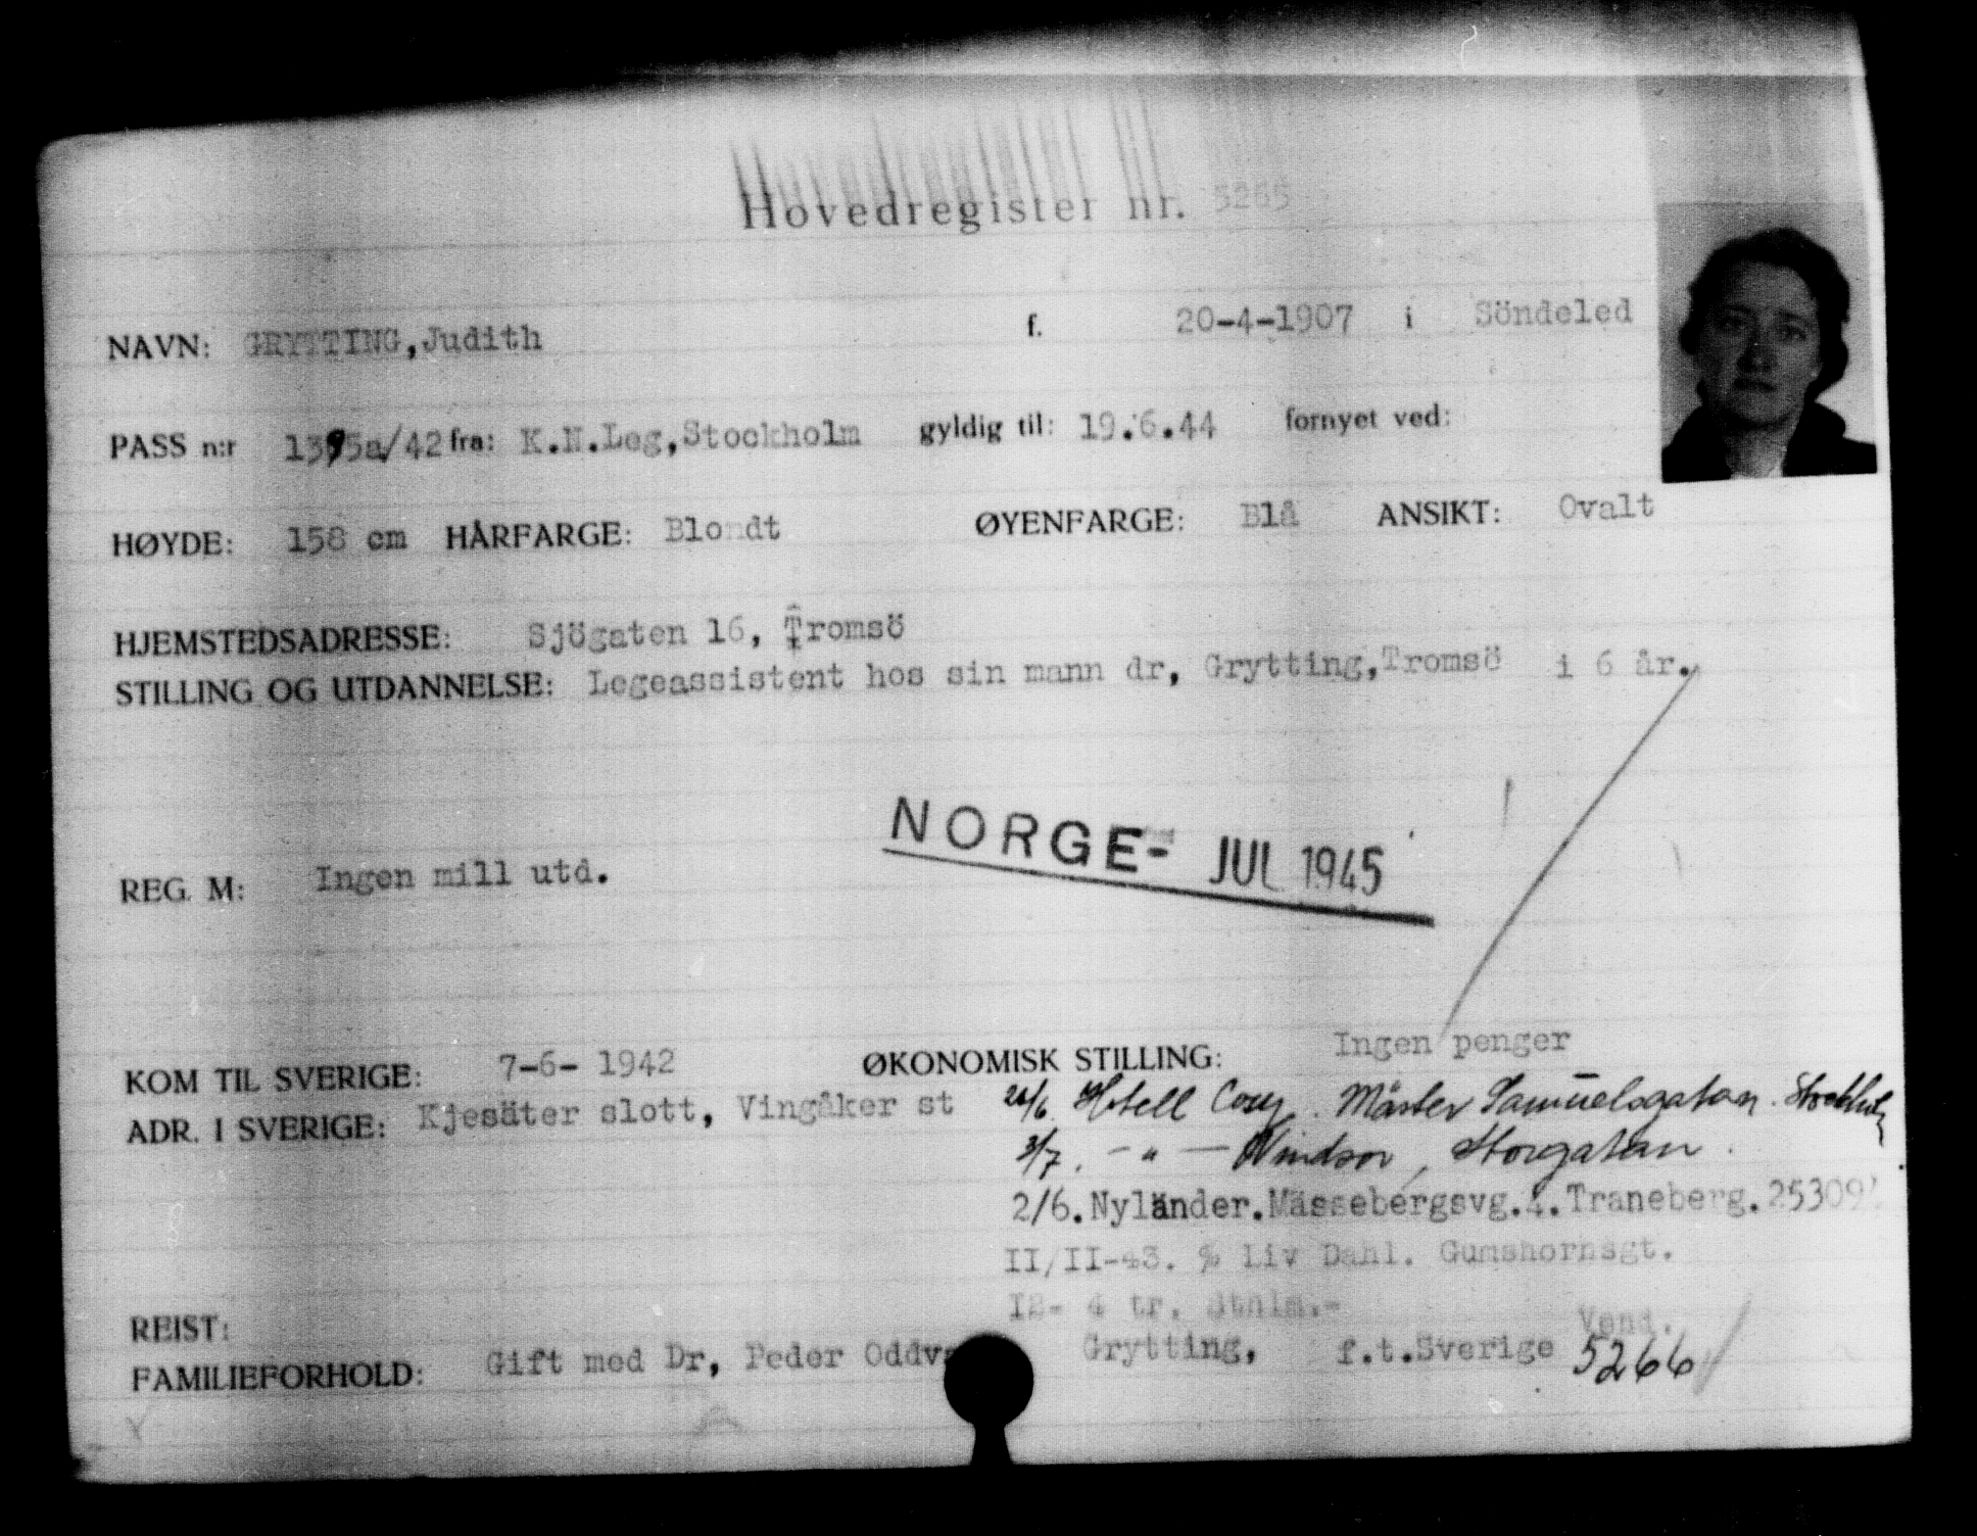 Hovedregister nr. 5265
NAVN: GRYTTING,Judith f. 20-4-1907 i Söndeled
PASS n:r 1395a/42 fra: K.N.Leg,Stockholm gyldig til: 19.6.44 fornyet ved:
HØYDE: 158 cm HÅRFARGE: Blondt ØYENFARGE: Blå ANSIKT: Ovalt
HJEMSTEDSADRESSE: Sjögaten 16, Tromsö
STILLING OG UTDANNELSE: Legeassistent hos sin mann dr, Grytting,Tromsö i 6 år.
NORGE- JUL 1945
REG. M: Ingen mill utd.
KOM TIL SVERIGE: 7-6- 1942 ØKONOMISK STILLING: Ingen penger
ADR. I SVERIGE: Kjesäter slott, Vingåker st Hotell Cosy. Mäster Samuelsgatan. Stockholm
3/7. — " — Windsor, Storgatan.
2/6. Nyländer. Mässebergsvg. 4. Traneberg.
II/II-43. % Liv Dahl. Gumshornsgt.
I2- 4 tr. Sthlm.-
REIST: Vend.
FAMILIEFORHOLD: Gift med Dr, Peder Grytting, f.t.Sverige 5266